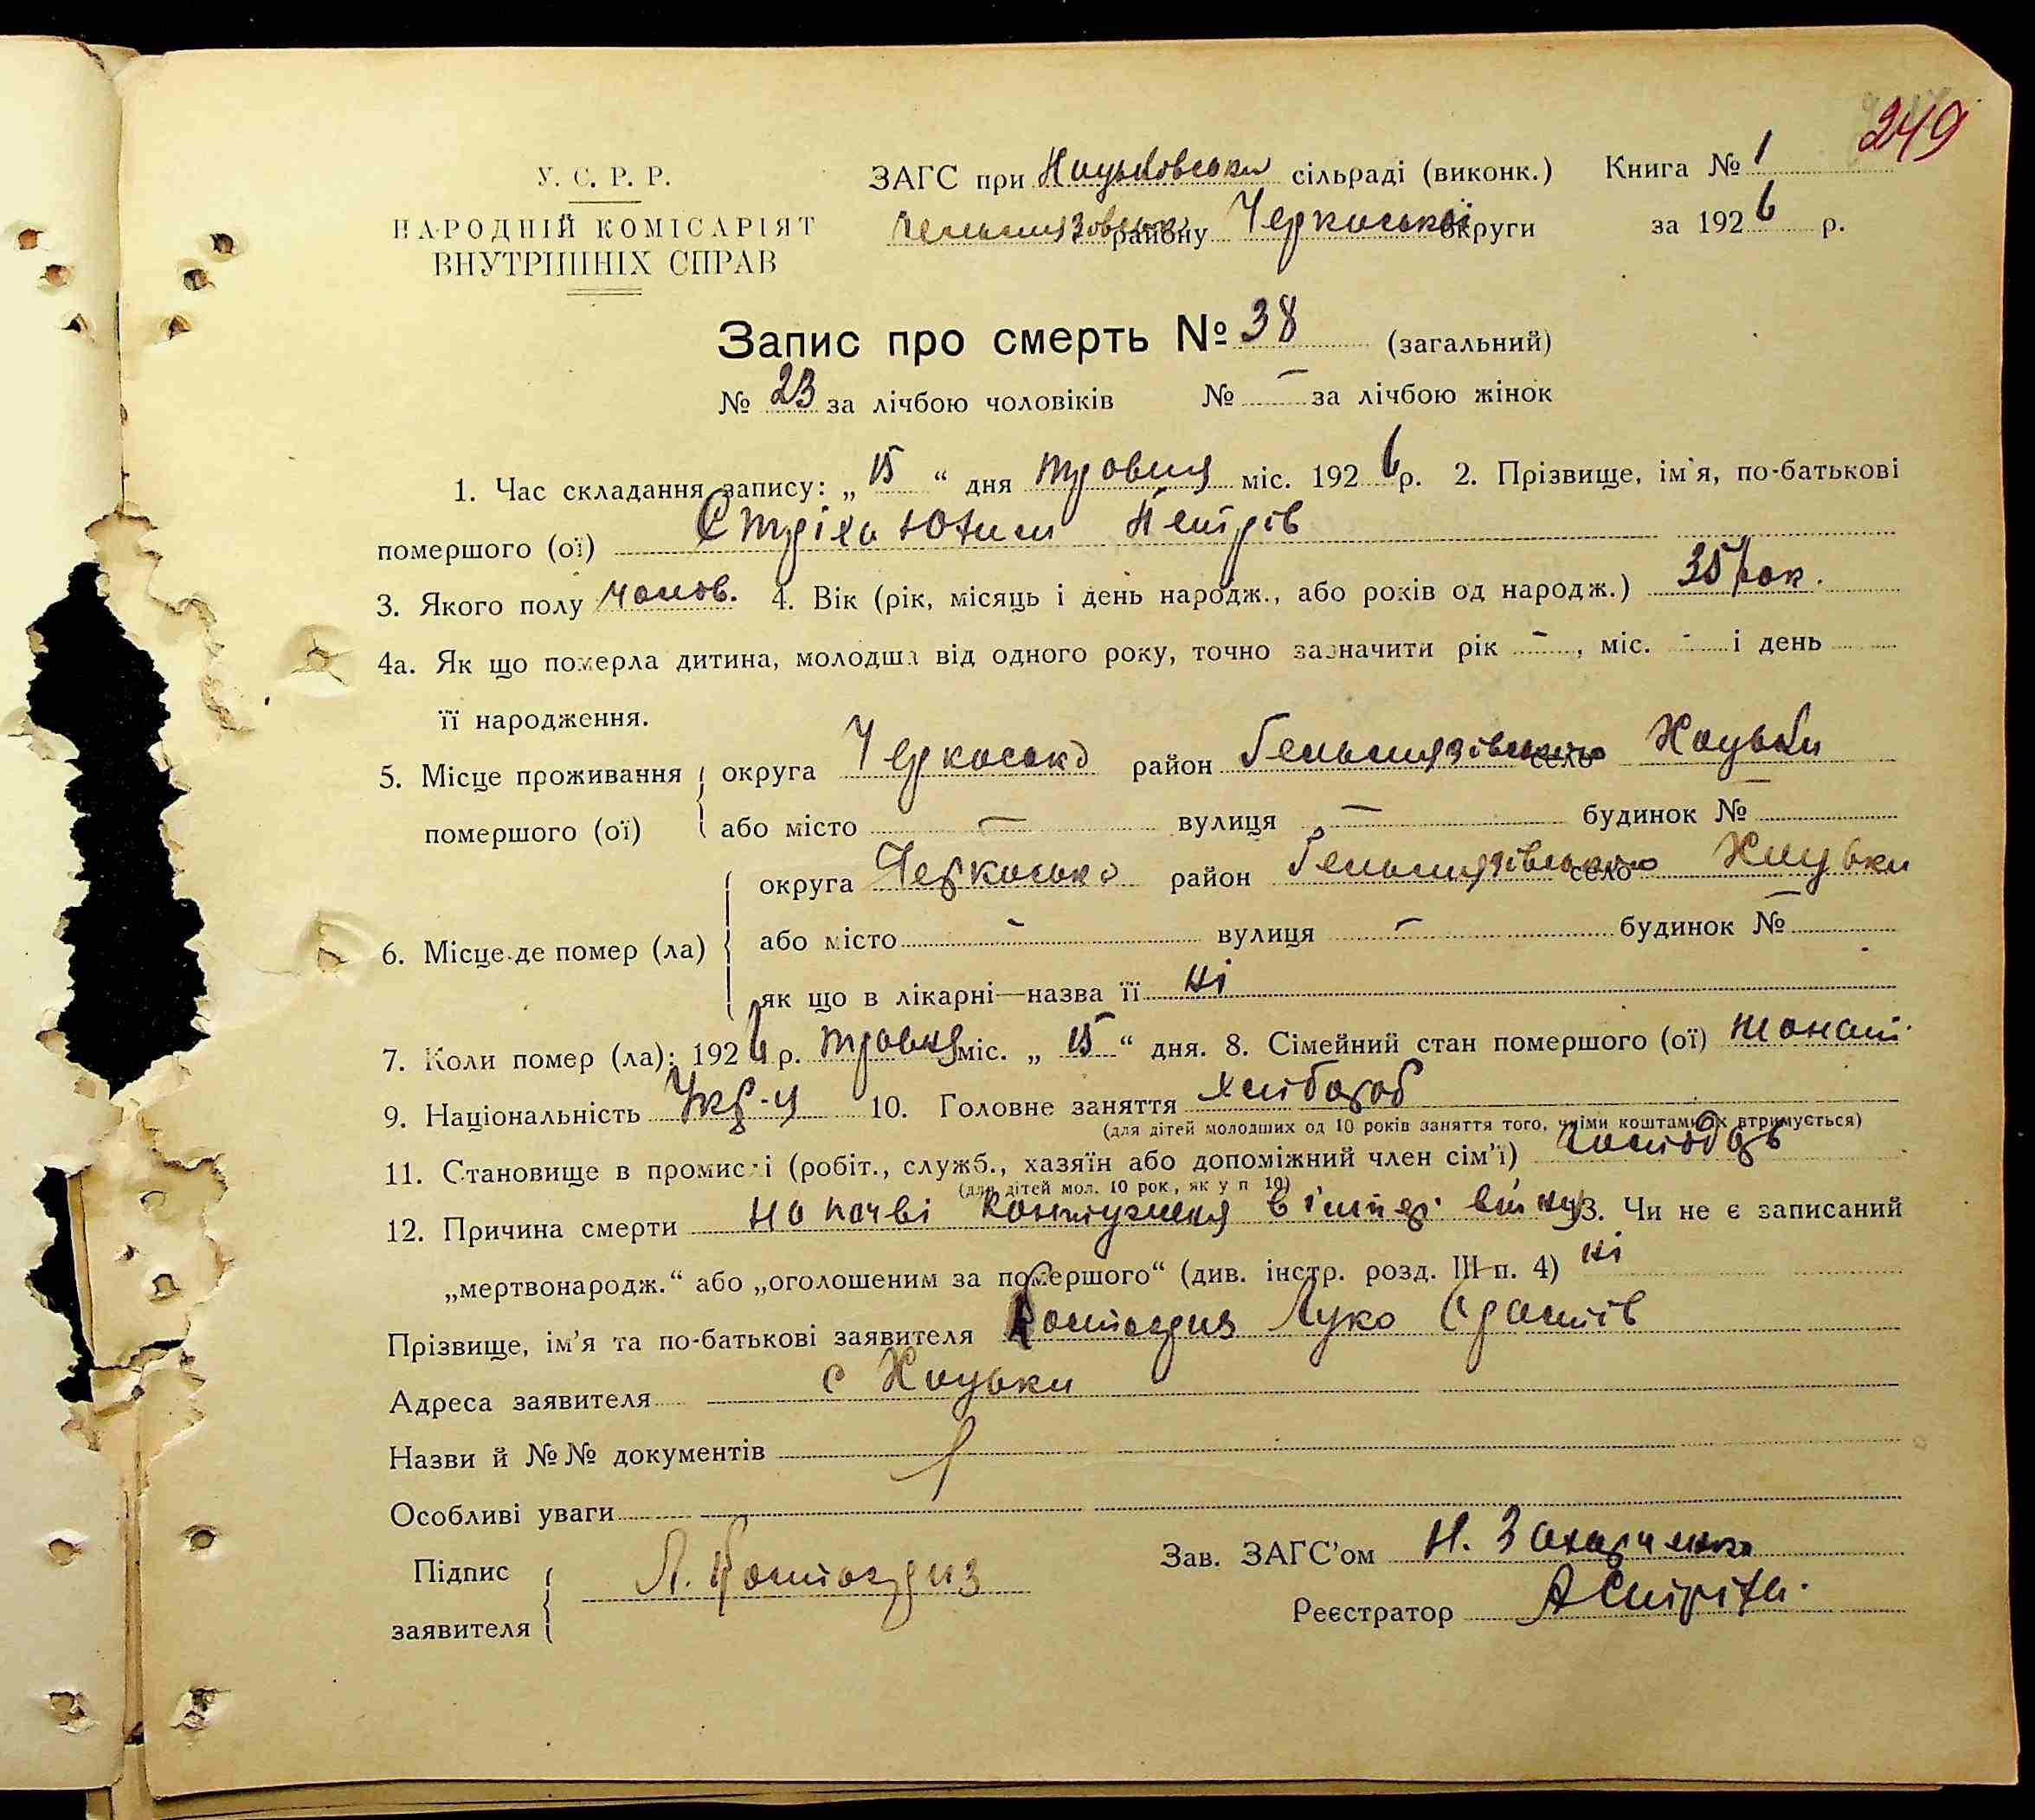 249
У. С. Р. Р.
НАРОДНІЙ КОМІСАРІЯТ
ВНУТРІШНІХ СПРАВ
ЗАГС при сільраді (виконк.) Книга № 1
району Черкаської округи за 1926 р.
Запис про смерть № 38 (загальний)
№ 23 за лічбою чоловіків № - за лічбою жінок
1. Час складання запису: „ 15 “ дня травня міс. 1926 р. 2. Прізвище, ім'я, по-батькові
помершого (ої) Стріха Юхим Петрів
3. Якого полу чолов. 4. Вік (рік, місяць і день народж., або років од народж.) 35 рок.
4а. Як що померла дитина, молодша від одного року, точно зазначити рік -, міс. - і день
її народження.
5. Місце проживання округа Черкаська район Гельмязівськ село Хоцьки
помершого (ої) або місто — вулиця — будинок № —
6. Місце де помер (ла) округа Черкаська район Гельмязівськ село Хоцьки
або місто - вулиця - будинок № -
як що в лікарні—назва її ні
7. Коли помер (ла): 1926 р. травня міс. „ 15 “ дня. 8. Сімейний стан помершого (ої) жонат.
9. Національність Укр-ц 10. Головне заняття хлібороб
(для дітей молодших од 10 років заняття того, чиїми коштами їх втримується)
11. Становище в промислі (робіт., служб., хазяїн або допоміжний член сім'ї) господарь
(для дітей мол. 10 рок, як у п 10)
12. Причина смерти на почві контуження в імпер. війну 13. Чи не є записаний
„мертвонародж.“ або „оголошеним за помершого“ (див. інстр. розд. III п. 4) ні
Прізвище, ім'я та по-батькові заявителя Лука
Адреса заявителя с Хоцьки
Назви й №№ документів
Особливі уваги
Підпис
заявителя Л.
Зав. ЗАГС'ом Н. Захарченко
Реєстратор А